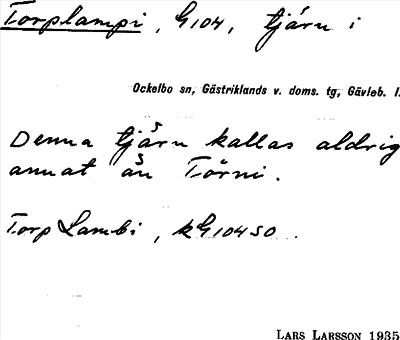 Torplampi, G104, tjärn i
Ockelbo sn, Gästriklands v. doms. tg, Gävleb. l.
Denna tjärn kallas aldrig
annat än Törni.
Torp Lambi, kG104SO.
LARS LARSSON 1935